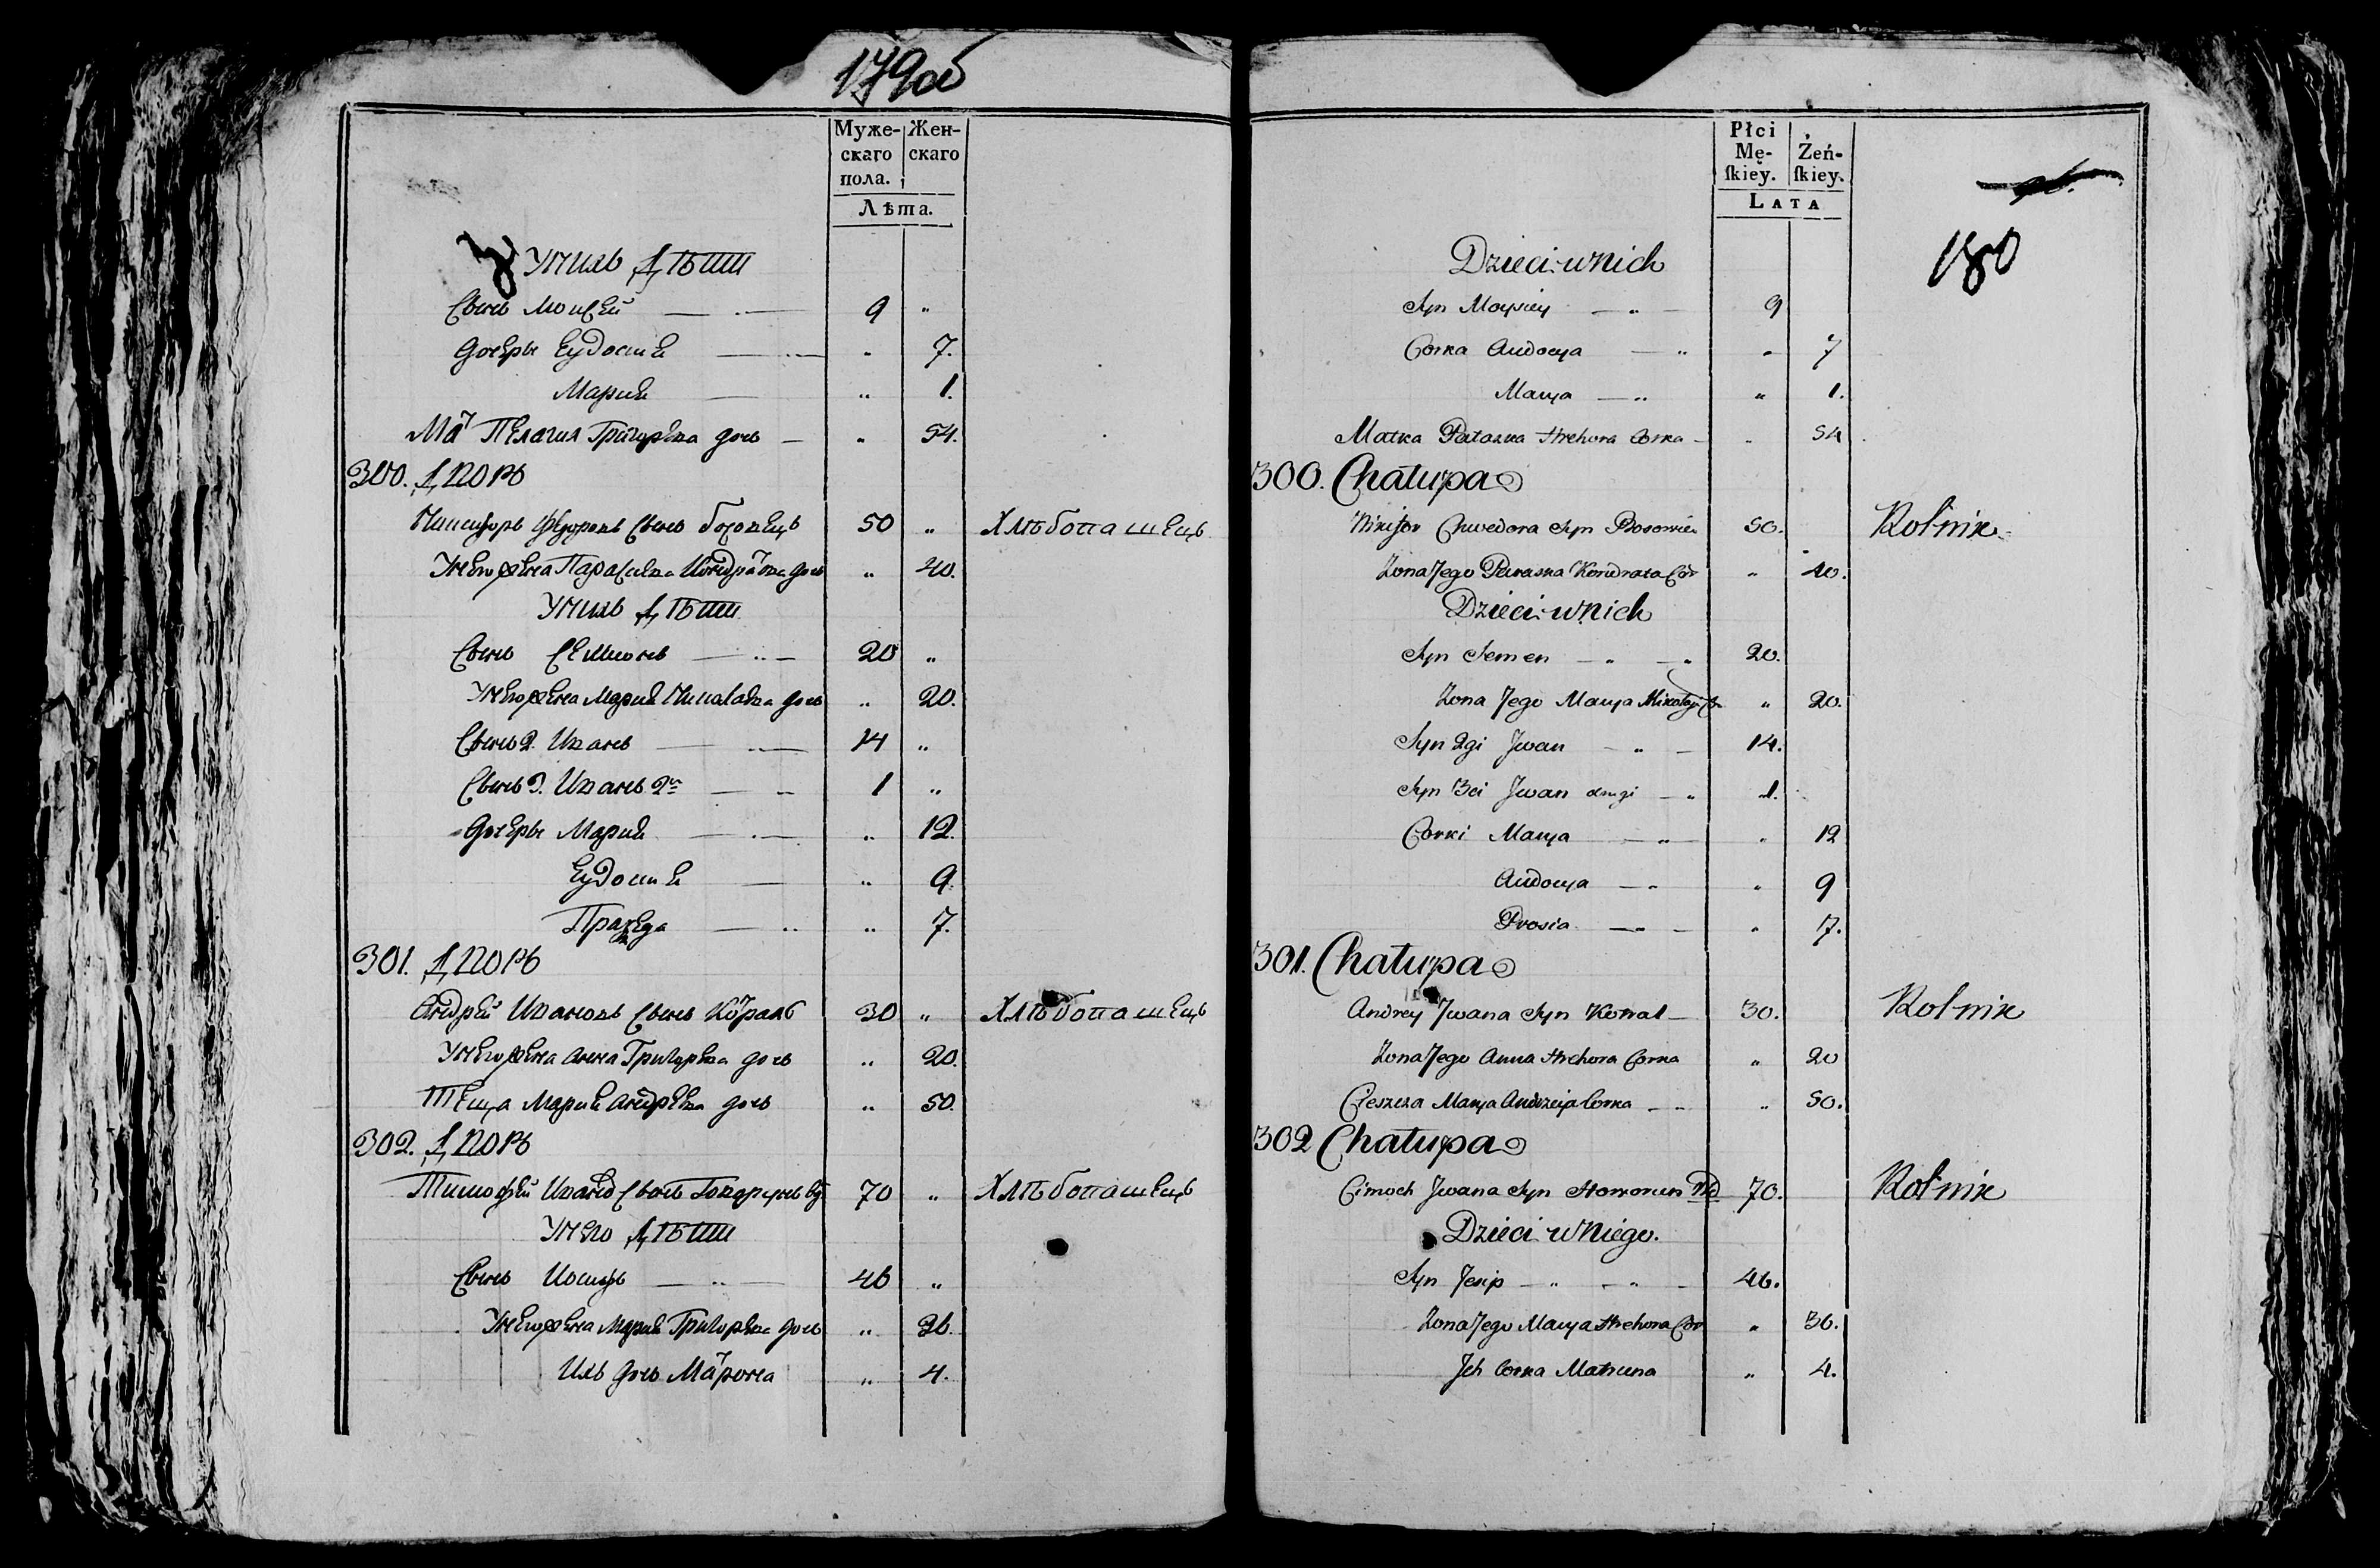 179об
Муже- Жен-
скаго скаго
пола.
Лѣта.
У нихъ Дѣти
Сынъ Моисей 9 "
Дочери Еудокия " 7.
Мария " 1.
Мать Пелагия Григорева дочь " 54.
300. Дворъ
Никифоръ Федоровъ Сынъ 50 " Хлѣбопашецъ
У него жена Параскева Кондратова дочь " 40.
У нихъ Дѣти
Сынъ Семионъ 20 "
У него жена Мария Николаева дочь " 20.
Сынъ 2. Иванъ 14 "
Сынъ 3. Иванъ 2й 1 "
Дочери Мария " 12.
Еудокия " 9.
" 7.
301. Дворъ
Андрей Ивановъ Сынъ Коваль 30 " Хлѣбопашецъ
У него жена Анна Григорева дочь " 20.
Теща Мария Андреева дочь " 50.
302. Дворъ
Тимофей Иванов Сынъ 70 " Хлѣбопашецъ
У него Дѣти
Сынъ Иосифъ 46 "
У него жена Мария Григорева дочь " 36.
Ихъ дочь Матрона " 4.
Płci
Mę- Żeń-
ſkiey. ſkiey.
LATA
180
Dzieci w nich
Syn Moysiey " 9
Corka Audocya " " 7
Marya " " 1.
Matka Hrehora Corka " 54
300. Chałupa
Nikifor Chwedora Syn 50. Rolnik
Zona Jego Paraska Kondrata Cór " 40.
Dzieci w nich
Syn Semen " " 20.
Zona Jego Marya Mikołaja Cor " 20.
Syn 2gi Jwan " 14.
Syn 3ci Jwan drugi " 1.
Corki Marya " " 12
Audocya " " 9
Prosia " " 7.
301. Chałupa
Andrey Jwana Syn Kowal 30. Rolnik
Zona Jego Anna Hrehora Corka " 20
Cieszcza Marya Andrzeja Corka " 50.
302 Chałupa
Cimoch Jwana Syn Wd 70. Rolnik
Dzieci w niego.
Syn Jesip " " 46.
Zona Jego Marya Hrehora Cór " 36.
Jch Corka Matruna " 4.